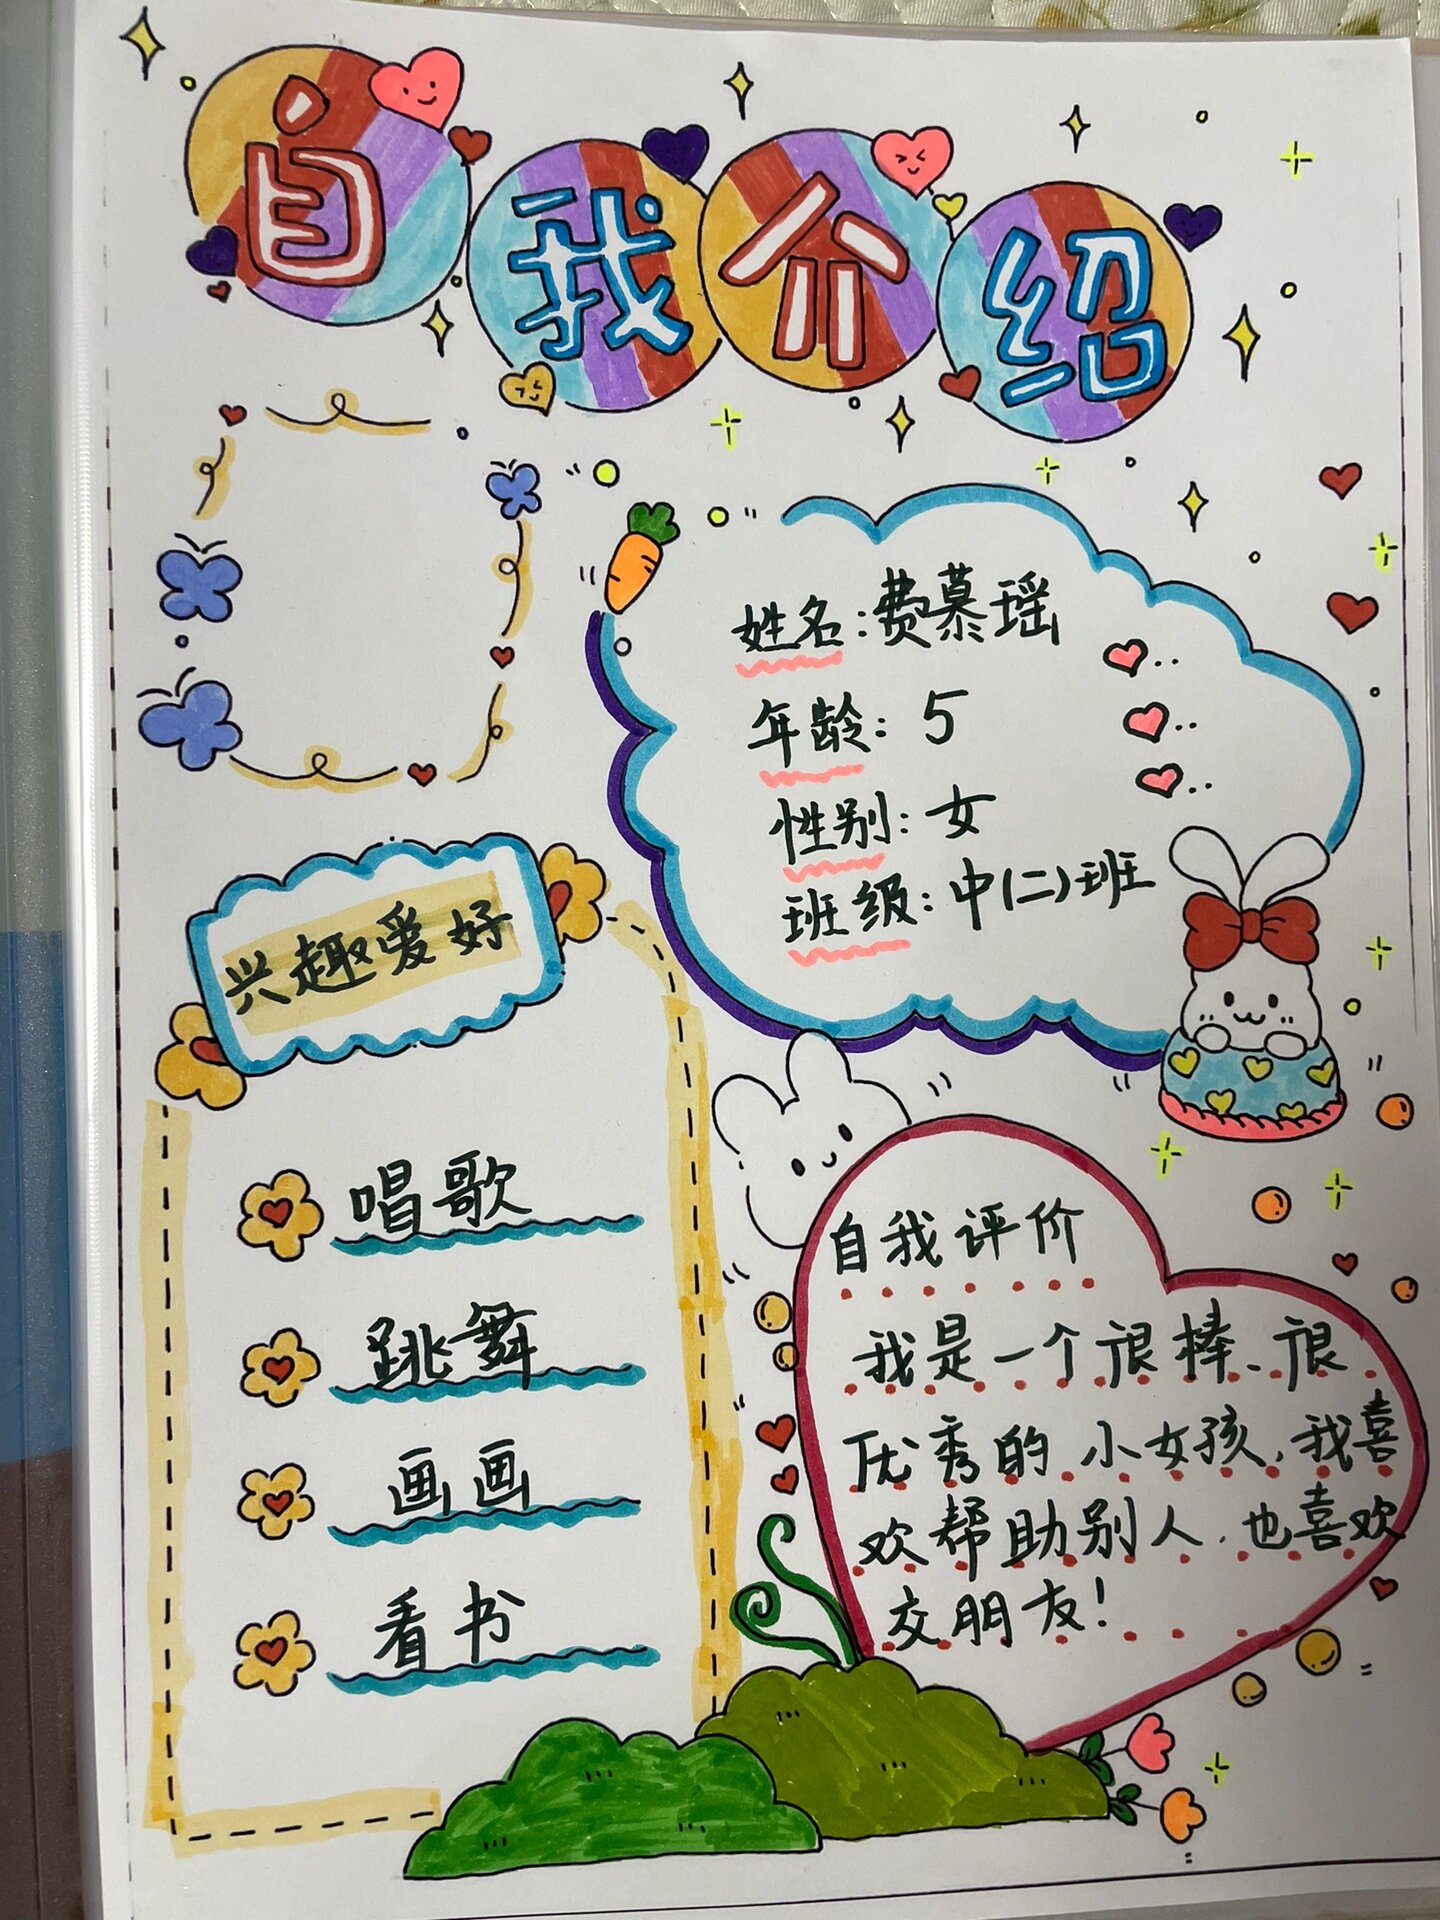 自我介绍
姓名：费慕瑶
年龄：5
性别：女
班级：中(二)班
兴趣爱好
唱歌
跳舞
画画
看书
自我评价
我是一个很棒、很
优秀的小女孩，我喜
欢帮助别人，也喜欢
交朋友！